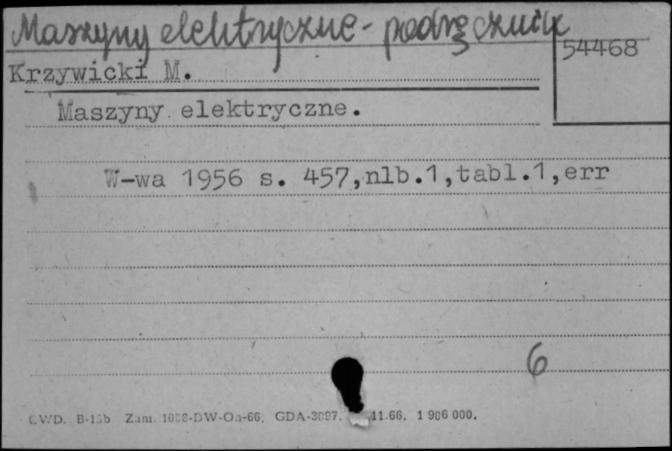 Maszyny elektryczne - podręcznik
54468
Krzywicki M.
Maszyny elektryczne.
W-wa 1956 s. 457,nlb.1,tabl.1,err
6
CWD. B-15b Zam. GDA-3097. 11.66. 1 906 000.